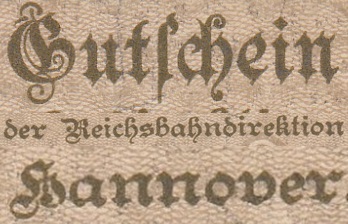 Gutſchein
der Reichsbahndirektion
Hannover.